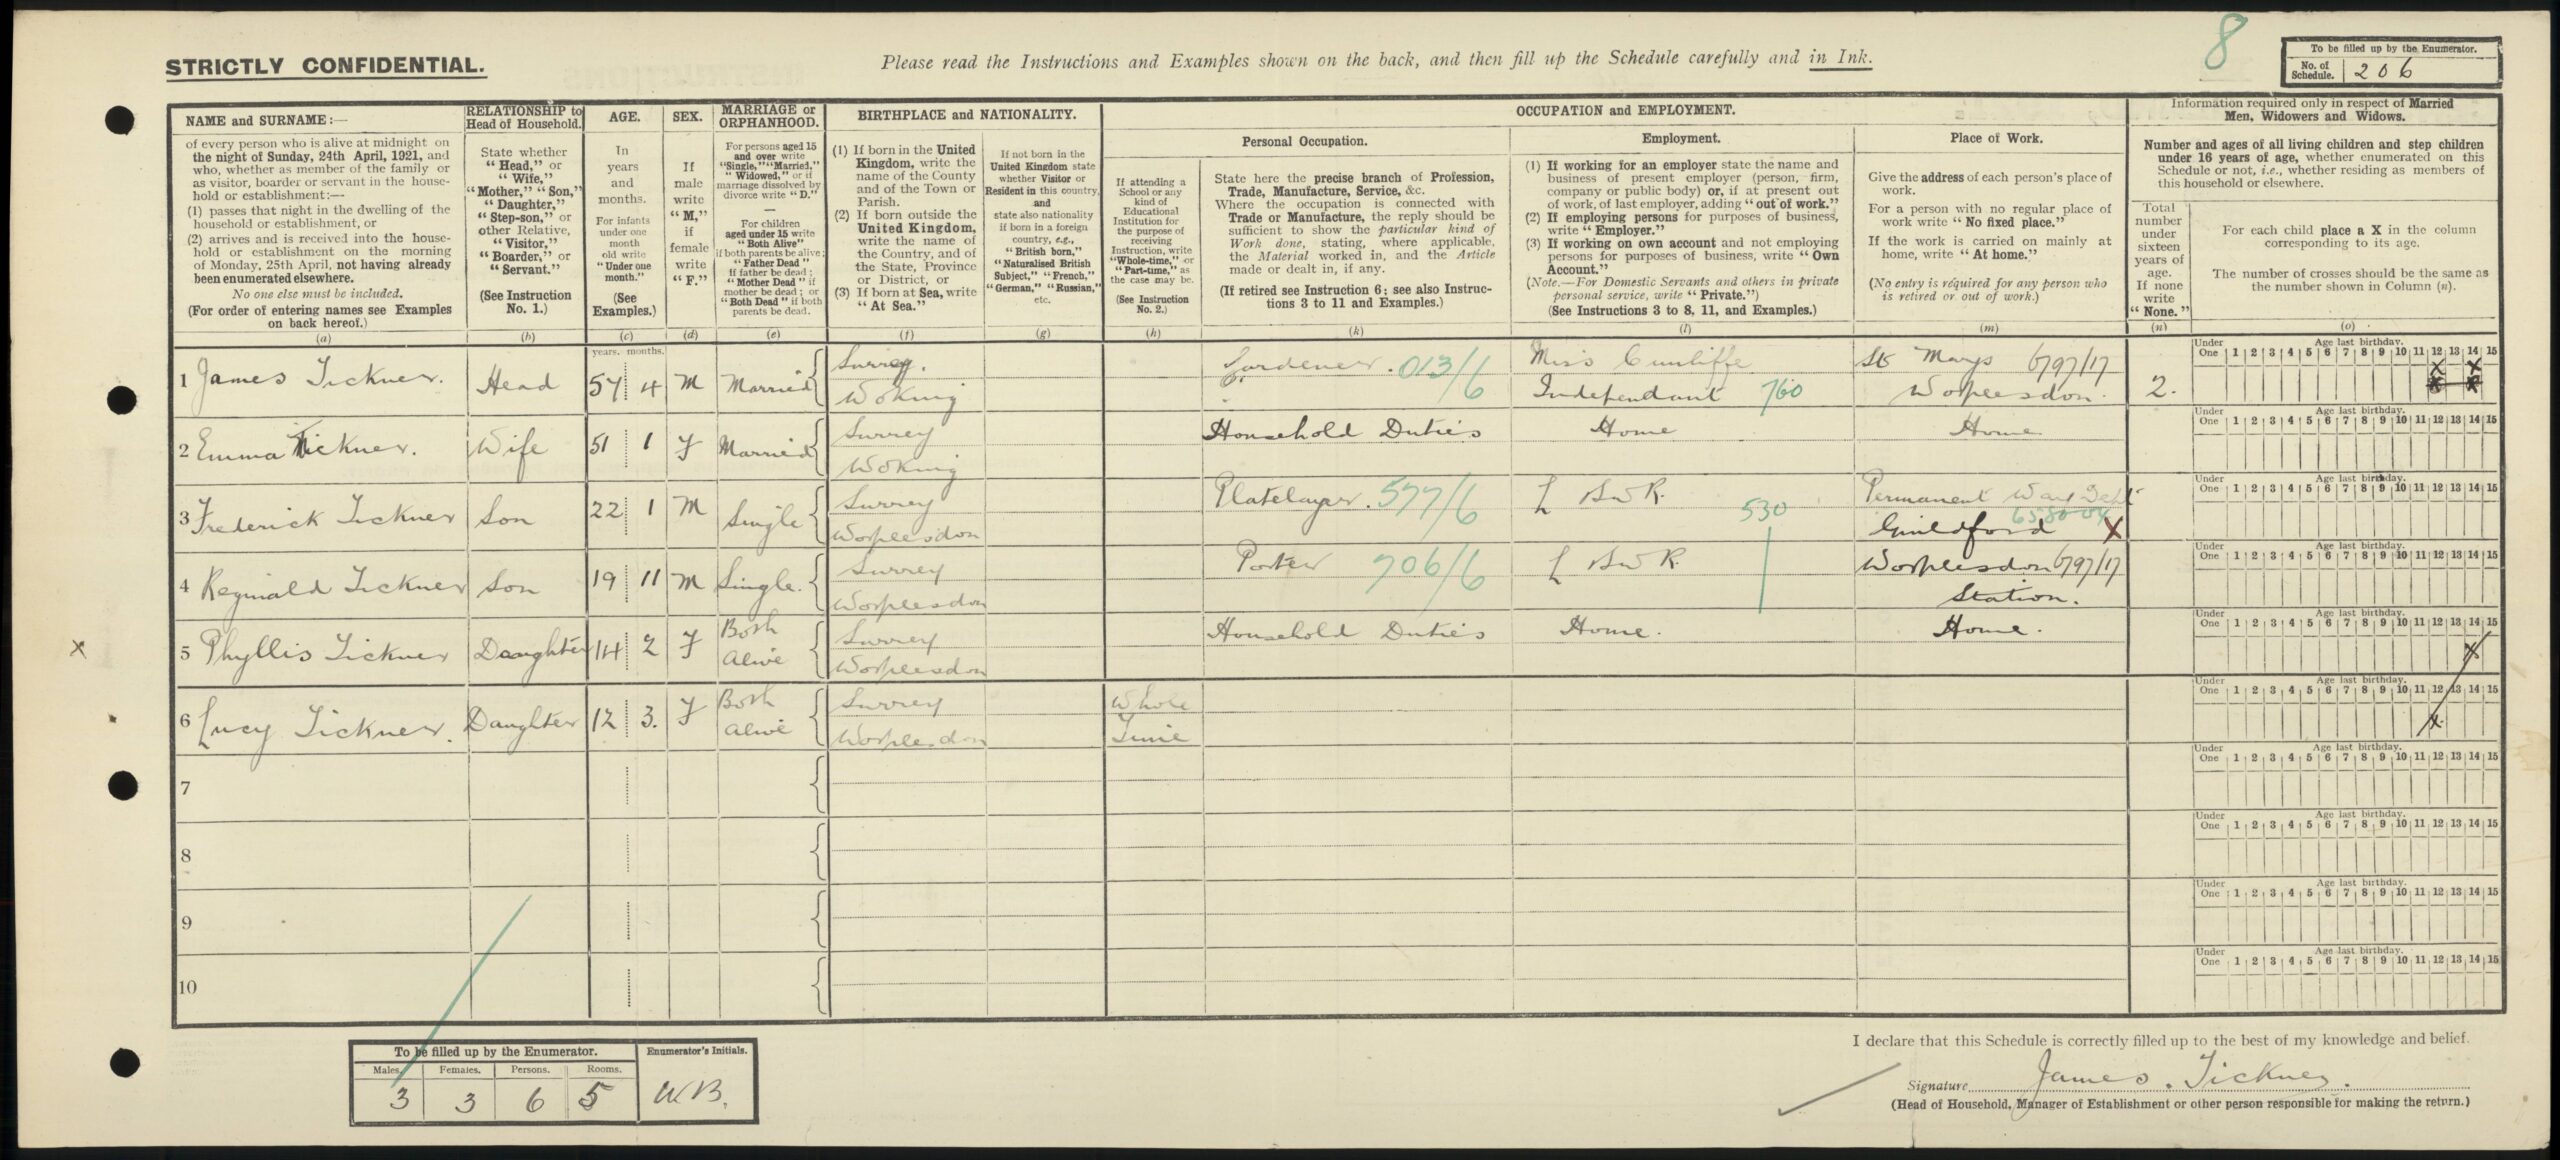 8
STRICTLY CONFIDENTIAL.
Please read the Instructions and Examples shown on the back, and then fill up the Schedule carefully and in Ink.
To be filled up by the Enumerator.
No. of Schedule. 206
NAME and SURNAME:—
of every person who is alive at midnight on
the night of Sunday, 24th April, 1921, and
who, whether as member of the family or
as visitor, boarder or servant in the house-
hold or establishment:—
(1) passes that night in the dwelling of the
household or establishment, or
(2) arrives and is received into the house-
hold or establishment on the morning
of Monday, 25th April, not having already
been enumerated elsewhere.
No one else must be included.
(For order of entering names see Examples
on back hereof.)
(a)
RELATIONSHIP to
Head of Household.
State whether
"Head," or
"Wife,"
"Mother," "Son,"
"Daughter,"
"Step-son," or
other Relative,
"Visitor,"
"Boarder," or
"Servant."
(See Instruction
No. 1.)
(b)
AGE.
In
years
and
months.
For infants
under one
month
old write
"Under one
month."
(See
Examples.)
(c)
SEX.
If
male
write
"M,"
if
female
write
"F."
(d)
MARRIAGE or
ORPHANHOOD.
For persons aged 15
and over write
"Single," "Married,"
"Widowed," or if
marriage dissolved by
divorce write "D."
—
For children
aged under 15 write
"Both Alive"
if both parents be alive;
"Father Dead"
if father be dead;
"Mother Dead" if
mother be dead; or
"Both Dead" if both
parents be dead.
(e)
BIRTHPLACE and NATIONALITY.
(1) If born in the United
Kingdom, write the
name of the County
and of the Town or
Parish.
(2) If born outside the
United Kingdom,
write the name of
the Country, and of
the State, Province
or District, or
(3) If born at Sea, write
"At Sea."
(f)
If not born in the
United Kingdom state
whether Visitor or
Resident in this country,
and
state also nationality
if born in a foreign
country, e.g.,
"British born,"
"Naturalised British
Subject," "French,"
"German," "Russian,"
etc.
(g)
OCCUPATION and EMPLOYMENT.
If attending a
School or any
kind of
Educational
Institution for
the purpose of
receiving
Instruction, write
"Whole-time," or
"Part-time," as
the case may be.
(See Instruction
No. 2.)
(h)
Personal Occupation.
State here the precise branch of Profession,
Trade, Manufacture, Service, &c.
Where the occupation is connected with
Trade or Manufacture, the reply should be
sufficient to show the particular kind of
Work done, stating, where applicable,
the Material worked in, and the Article
made or dealt in, if any.
(If retired see Instruction 6; see also Instruc-
tions 3 to 11 and Examples.)
(k)
Employment.
(1) If working for an employer state the name and
business of present employer (person, firm,
company or public body) or, if at present out
of work, of last employer, adding "out of work."
(2) If employing persons for purposes of business,
write "Employer."
(3) If working on own account and not employing
persons for purposes of business, write "Own
Account."
(Note.—For Domestic Servants and others in private
personal service, write "Private.")
(See Instructions 3 to 8, 11, and Examples.)
(l)
Place of Work.
Give the address of each person's place of
work.
For a person with no regular place of
work write "No fixed place."
If the work is carried on mainly at
home, write "At home."
(No entry is required for any person who
is retired or out of work.)
(m)
Information required only in respect of Married
Men, Widowers and Widows.
Number and ages of all living children and step children
under 16 years of age, whether enumerated on this
Schedule or not, i.e., whether residing as members of
this household or elsewhere.
Total
number
under
sixteen
years of
age.
If none
write
"None."
(n)
For each child place a X in the column
corresponding to its age.
The number of crosses should be the same as
the number shown in Column (n).
(o)
years. months.
Under One Age last birthday. 1 2 3 4 5 6 7 8 9 10 11 12 13 14 15
1 James Tickner. Head 57 4 M Married Surrey. Woking Gardener. 013/6 Miss Cunliffe Independant 760 St Marys 6797/17 Worplesdon. 2. X X
Under One Age last birthday. 1 2 3 4 5 6 7 8 9 10 11 12 13 14 15
2 Emma Tickner. Wife 51 1 F Married Surrey Woking Household Duties Home Home
Under One Age last birthday. 1 2 3 4 5 6 7 8 9 10 11 12 13 14 15
3 Frederick Tickner Son 22 1 M Single Surrey Worplesdon Platelayer. 577/6 L & S W R. 530 Permanent Way Dept Guildford X
Under One Age last birthday. 1 2 3 4 5 6 7 8 9 10 11 12 13 14 15
4 Reginald Tickner Son 19 11 M Single. Surrey Worplesdon Porter 706/6 L & S W R. Worplesdon 6797/17 Station.
Under One Age last birthday. 1 2 3 4 5 6 7 8 9 10 11 12 13 14 15
X 5 Phyllis Tickner Daughter 14 2 F Both Alive Surrey Worplesdon Household Duties Home. Home. X
Under One Age last birthday. 1 2 3 4 5 6 7 8 9 10 11 12 13 14 15
6 Lucy Tickner. Daughter 12 3. F Both Alive Surrey Worplesdon Whole Time X
Under One Age last birthday. 1 2 3 4 5 6 7 8 9 10 11 12 13 14 15
7
Under One Age last birthday. 1 2 3 4 5 6 7 8 9 10 11 12 13 14 15
8
Under One Age last birthday. 1 2 3 4 5 6 7 8 9 10 11 12 13 14 15
9
Under One Age last birthday. 1 2 3 4 5 6 7 8 9 10 11 12 13 14 15
10
To be filled up by the Enumerator.
Males. Females. Persons. Rooms.
3 3 6 5
Enumerator's Initials.
W.B.
I declare that this Schedule is correctly filled up to the best of my knowledge and belief.
Signature James. Tickner.
(Head of Household, Manager of Establishment or other person responsible for making the return.)